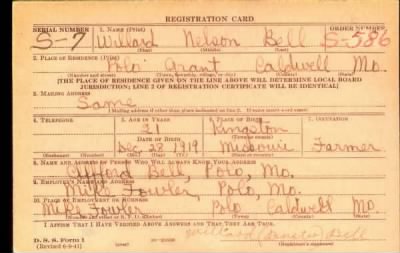 REGISTRATION CARD
SERIAL NUMBER 1. NAME (Print) ORDER NUMBER
S-7 Willard Nelson Bell S-586
(First) (Middle) (Last)
2. PLACE OF RESIDENCE (Print)
Polo Grant Caldwell Mo.
(Number and street) (Town, township, village, or city) (County) (State)
[THE PLACE OF RESIDENCE GIVEN ON THE LINE ABOVE WILL DETERMINE LOCAL BOARD
JURISDICTION; LINE 2 OF REGISTRATION CERTIFICATE WILL BE IDENTICAL]
3. MAILING ADDRESS
Same
[Mailing address if other than place indicated on line 2. If same insert word same]
4. TELEPHONE 5. AGE IN YEARS 6. PLACE OF BIRTH 7. OCCUPATION
21 Kingston
DATE OF BIRTH
Dec. 28 1919 Missouri Farmer
(Exchange) (Number) (Mo.) (Day) (Yr.) (State or country)
8. NAME AND ADDRESS OF PERSON WHO WILL ALWAYS KNOW YOUR ADDRESS
Bell, Polo, Mo.
9. EMPLOYER'S NAME AND ADDRESS
Mike Fowler, Polo, Mo.
10. PLACE OF EMPLOYMENT OR BUSINESS
Mike Fowler Polo Caldwell Mo.
(Number and street or R. F. D. number) (Town) (County) (State)
I AFFIRM THAT I HAVE VERIFIED ABOVE ANSWERS AND THAT THEY ARE TRUE.
D. S. S. Form 1
(Revised 6-9-41) Bell
(Registrant's signature)